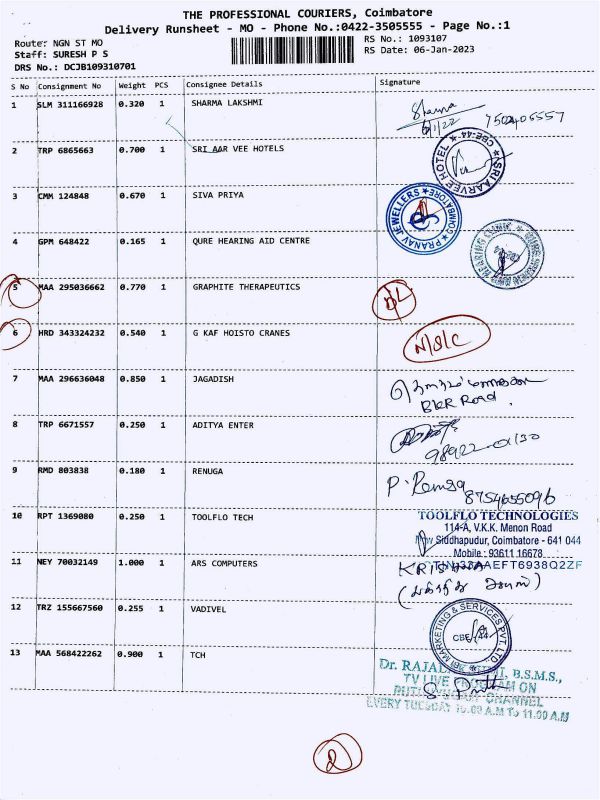 THE PROFESSIONAL COURIERS, Coimbatore
Delivery Runsheet - MO - Phone No.:0422-3505555 - Page No.:1
Route: NGN ST MO
Staff: SURESH P S
DRS No.: DCJB109310701
RS No.: 1093107
RS Date: 06-Jan-2023
S No Consignment No Weight PCS Consignee Details Signature
1 SLM 311166928 0.320 1 SHARMA LAKSHMI Sharma
2 TRP 6865663 0.700 1 SRI AAR VEE HOTELS SRI AARVEE HOTEL CBE-44
3 CMM 124848 0.670 1 SIVA PRIYA PRANAV JEWELLERS COIMBATORE
4 GPM 648422 0.165 1 QURE HEARING AID CENTRE
5 MAA 295036662 0.770 1 GRAPHITE THERAPEUTICS D/L
6 HRD 343324232 0.540 1 G KAF HOISTO CRANES N/S/C
7 MAA 296636048 0.850 1 JAGADISH
BKR Road.
8 TRP 6671557 0.250 1 ADITYA ENTER
9 RMD 803838 0.180 1 RENUGA P. Renuga
8754655096
10 RPT 1369080 0.250 1 TOOLFLO TECH TOOLFLO TECHNOLOGIES
114-A, V.K.K. Menon Road
New Siddhapudur, Coimbatore - 641 044
Mobile : 93611 16678
11 NEY 70032149 1.000 1 ARS COMPUTERS
12 TRZ 155667560 0.255 1 VADIVEL MARKETING & SERVICES PVT. LTD
13 MAA 568422262 0.900 1 TCH Dr. B.S.M.S.,
TV LIVE PROGRAM ON
CHANNEL
EVERY TUESDAY 10.00 A.M To 11.00 A.M
2